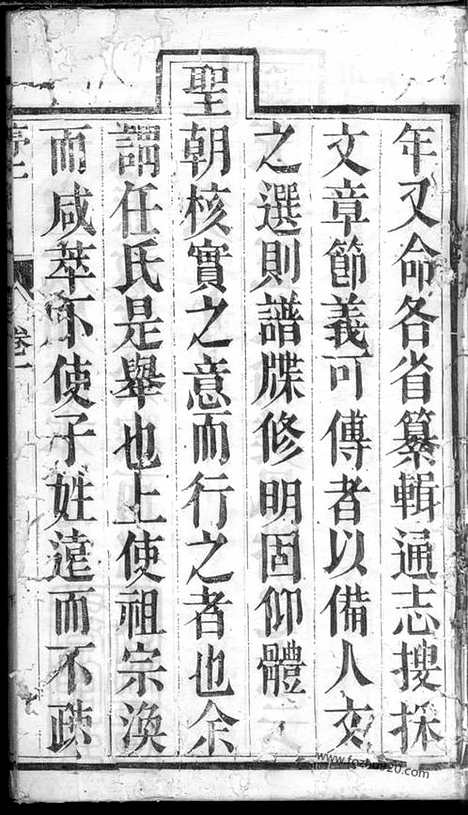 年又命各省纂輯通志搜採
文章節義可傳者以備人文
之選則譜牒修明固仰體
聖朝核實之意而行之者也余
謂任氏是舉也上使祖宗渙
而咸萃下使子姓遠而不疎
卷一
www.fozhu920.com